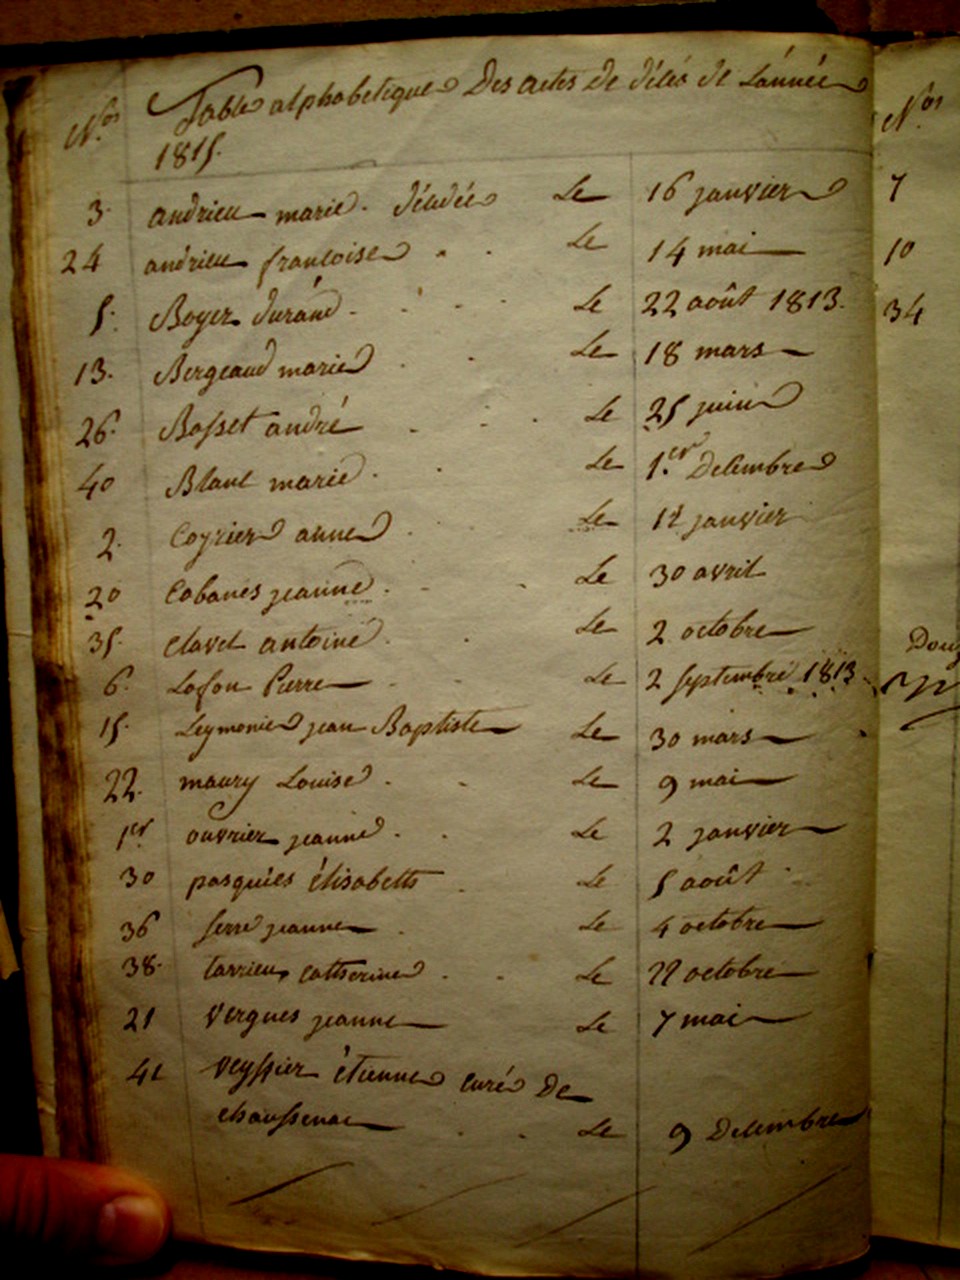 Nos Table alphabetique Des actes de décés de L'année
1815.
3. andrieu marie. décédée Le 16 janvier
24 andrieu francoise Le 14 mai
5. Boyer durand Le 22 août 1813.
13. Bergeaud marie Le 18 mars
26. Bosset andré Le 25 juin
40 Blanc marie Le 1.er Decembre
2. Coyrier anne Le 12 janvier
20 Cabanes jeanne Le 30 avril
35. Clavet antoine Le 2 octobre
6. Lafon Pierre Le 2 septembre 1813
15. Leymonie jean Baptiste Le 30 mars
22. maury Louise Le 9 mai
1er ouvrier jeanne Le 2 janvier
30 pasquies élisabeth Le 5 août
36 serre jeanne Le 4 octobre
38. tarrieu catherine Le 22 octobre
21 Vergnes jeanne Le 7 mai
41 veyssier étienne curé de
chaussenac Le 9 Decembre
Nos
7
10
34